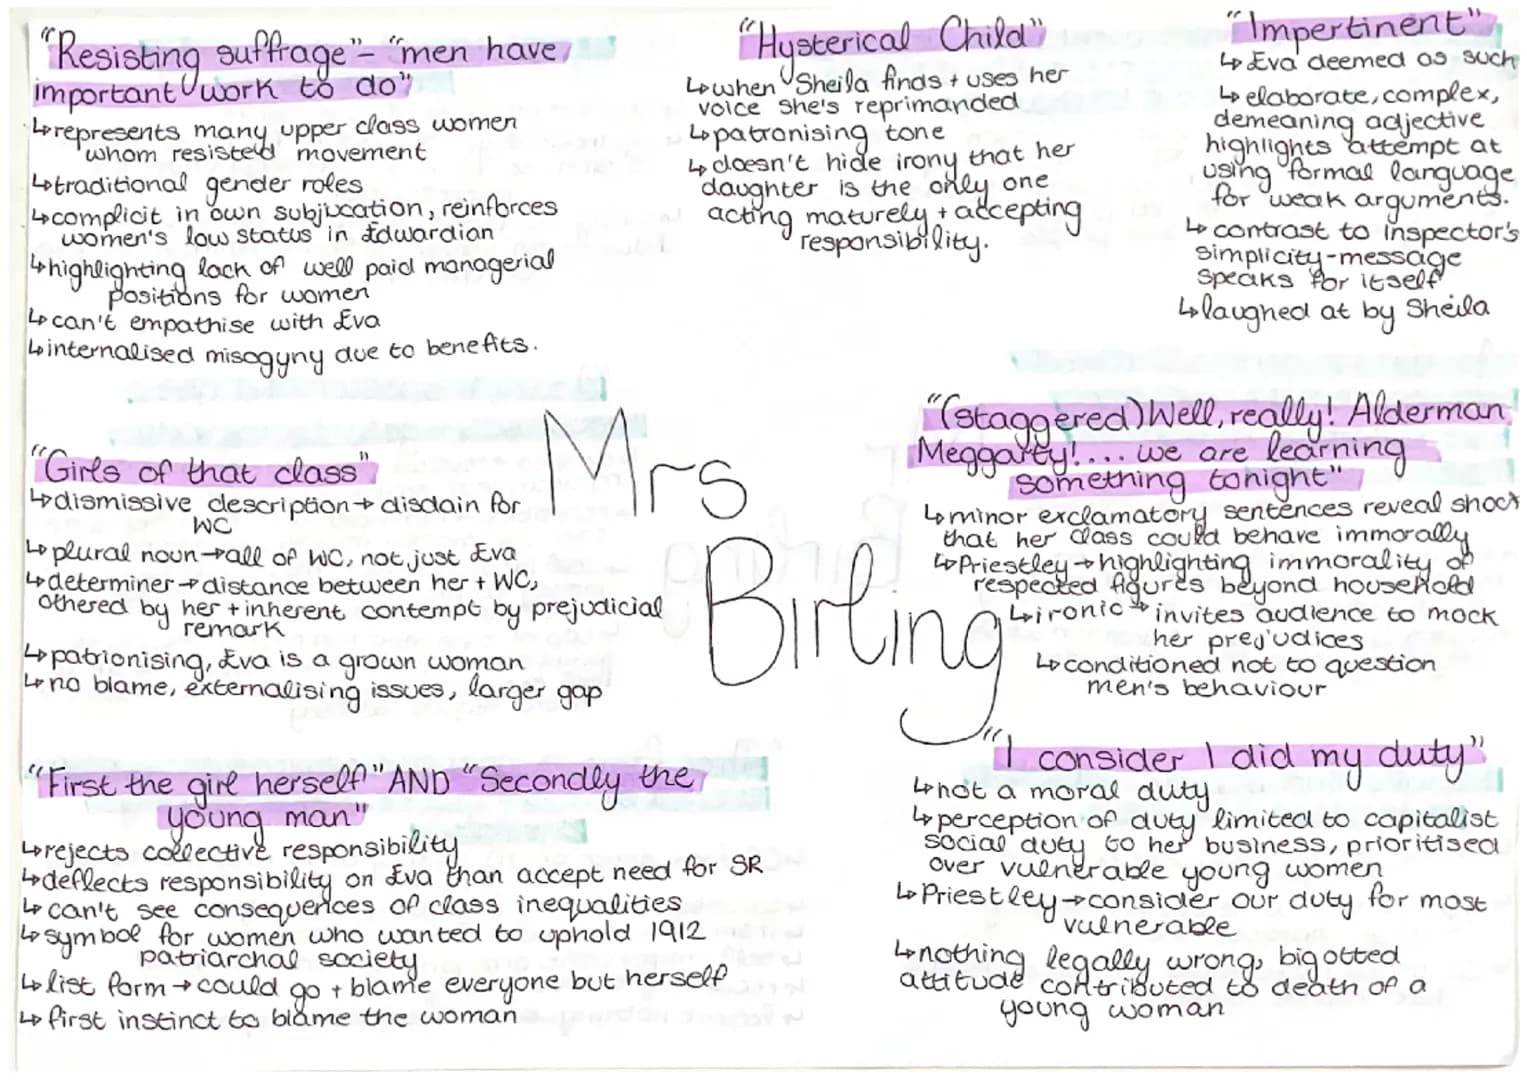 "Resisting suffrage" - "men have
important work to do"
↳represents many upper class women
whom resisted movement
↳traditional gender roles
↳complicit in own subjucation, reinforces
women's low status in Edwardian
↳highlighting lack of well paid managerial
positions for women
↳can't empathise with Eva
↳internalised misogyny due to benefits.
"Hysterical Child"
↳when Sheila finds + uses her
voice she's reprimanded
↳patronising tone
↳doesn't hide irony that her
daughter is the only one
acting maturely + accepting
responsibility.
"Impertinent"
↳Eva deemed as such
↳elaborate, complex,
demeaning adjective
highlights attempt at
using formal language
for weak arguments.
↳contrast to inspector's
simplicity-message
speaks for itself
↳laughed at by Sheila
Mrs
Birling
"Girls of that class"
↳dismissive description→disdain for
WC
↳plural noun→all of WC, not just Eva
↳determiner→distance between her + WC,
othered by her + inherent contempt by prejudicial
remark
↳patrionising, Eva is a grown woman
↳no blame, externalising issues, larger gap
"(staggered) Well, really! Alderman
Meggarty!.... we are learning
something tonight"
↳minor exclamatory sentences reveal shock
that her class could behave immorally
↳Priestley→highlighting immorality of
respected figures beyond household
↳ironic→invites audience to mock
her prejudices
↳conditioned not to question
men's behaviour
"First the girl herself" AND "Secondly the
young man"
↳rejects collective responsibility
↳deflects responsibility on Eva than accept need for SR
↳can't see consequences of class inequalities
↳symbol for women who wanted to uphold 1912
patriarchal society
↳list form→could go + blame everyone but herself
↳first instinct to blame the woman
"I consider I did my duty"
↳not a moral duty
↳perception of duty limited to capitalist
social duty to her business, prioritised
over vulnerable young women
↳Priestley→consider our duty for most
vulnerable
↳nothing legally wrong, bigotted
attitude contributed to death of a
young woman